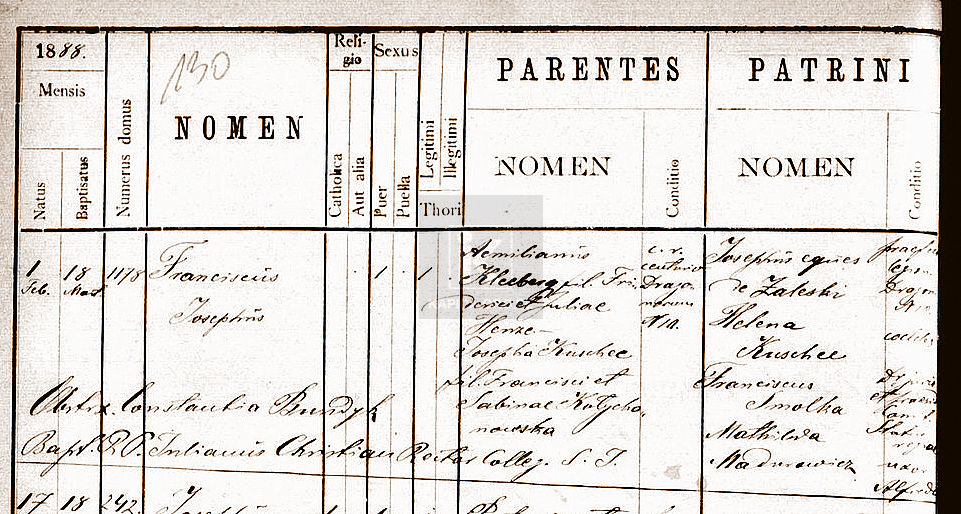 1888.
Mensis
Natus
Baptisatus
Numerus domus
130
NOMEN
Religio
Catholica
Aut alia
Sexus
Puer
Puella
Thori
Legitimi
Illegitimi
PARENTES
NOMEN
Conditio
PATRINI
NOMEN
Conditio
1 Feb. 18 Mart. 1178 Franciscus Josephus 1 1
Aemilianus
Kleeberg fil. Fri-
derici et Juliae
Henze –
Josepha Kuschee
fil. Francisci et
Sabinae Kutycha-
nowska
c. r.
centurio
Drago-
norum
N 10.
Josephus eques
de Zaleski
Helena
Kuschee
Franciscus
Smolka
Mathilda
Madurowicz
Obstrx. Constantia Bundyk
Bapt. R. P. Julianus Christian Rector Colleg. S. J.
17 18 242.